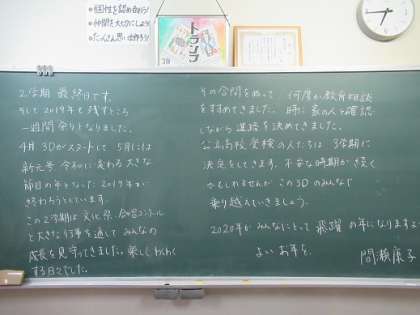 個性を認め合おう！
仲間を大切にしよう！
たくさん思い出作ろう！
トランプ
2学期 最終日です。
そして2019年も残すところ
一週間余りとなりました。
4月 3Dがスタートして 5月には
新元号 令和に変わる大きな
節目の年となった2019年が
終わろうとしています。
この2学期は文化祭、合唱コンクール
と大きな行事を通して みんなの
成長を見守ってきました。楽しくわくわく
する日々でした。
その合間をぬって、何度か教育相談
をすすめてきました。時に家の人と確認
しながら進路を決めてきました。
公立高校受検の人たちは3学期に
決定をしてきます。不安な時期が続く
かもしれませんが この3Dのみんなで
乗り越えていきましょう。
2020年が みんなにとって 飛躍 の年になりますように
よいお年を。
間瀬康子